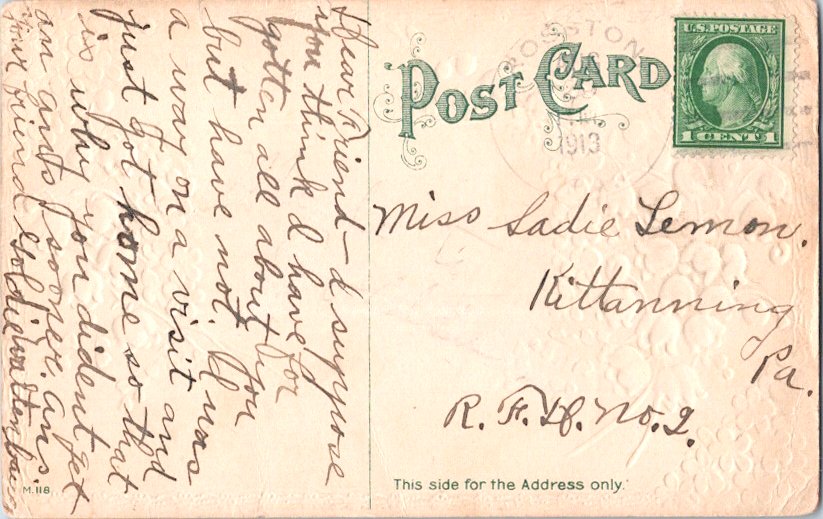 Dear Friend - I suppose
you think I have for
gotten all about you
but have not. I was
a way on a visit and
just got home so that
is why you dident get
an ans sooner. ans
your friend Goldie
POST CARD
ROSSTON
1913
U.S. POSTAGE
1 CENT 1
Miss Sadie Lemon.
Kittanning
Pa.
R. F. D. No. 2.
This side for the Address only.
M.118